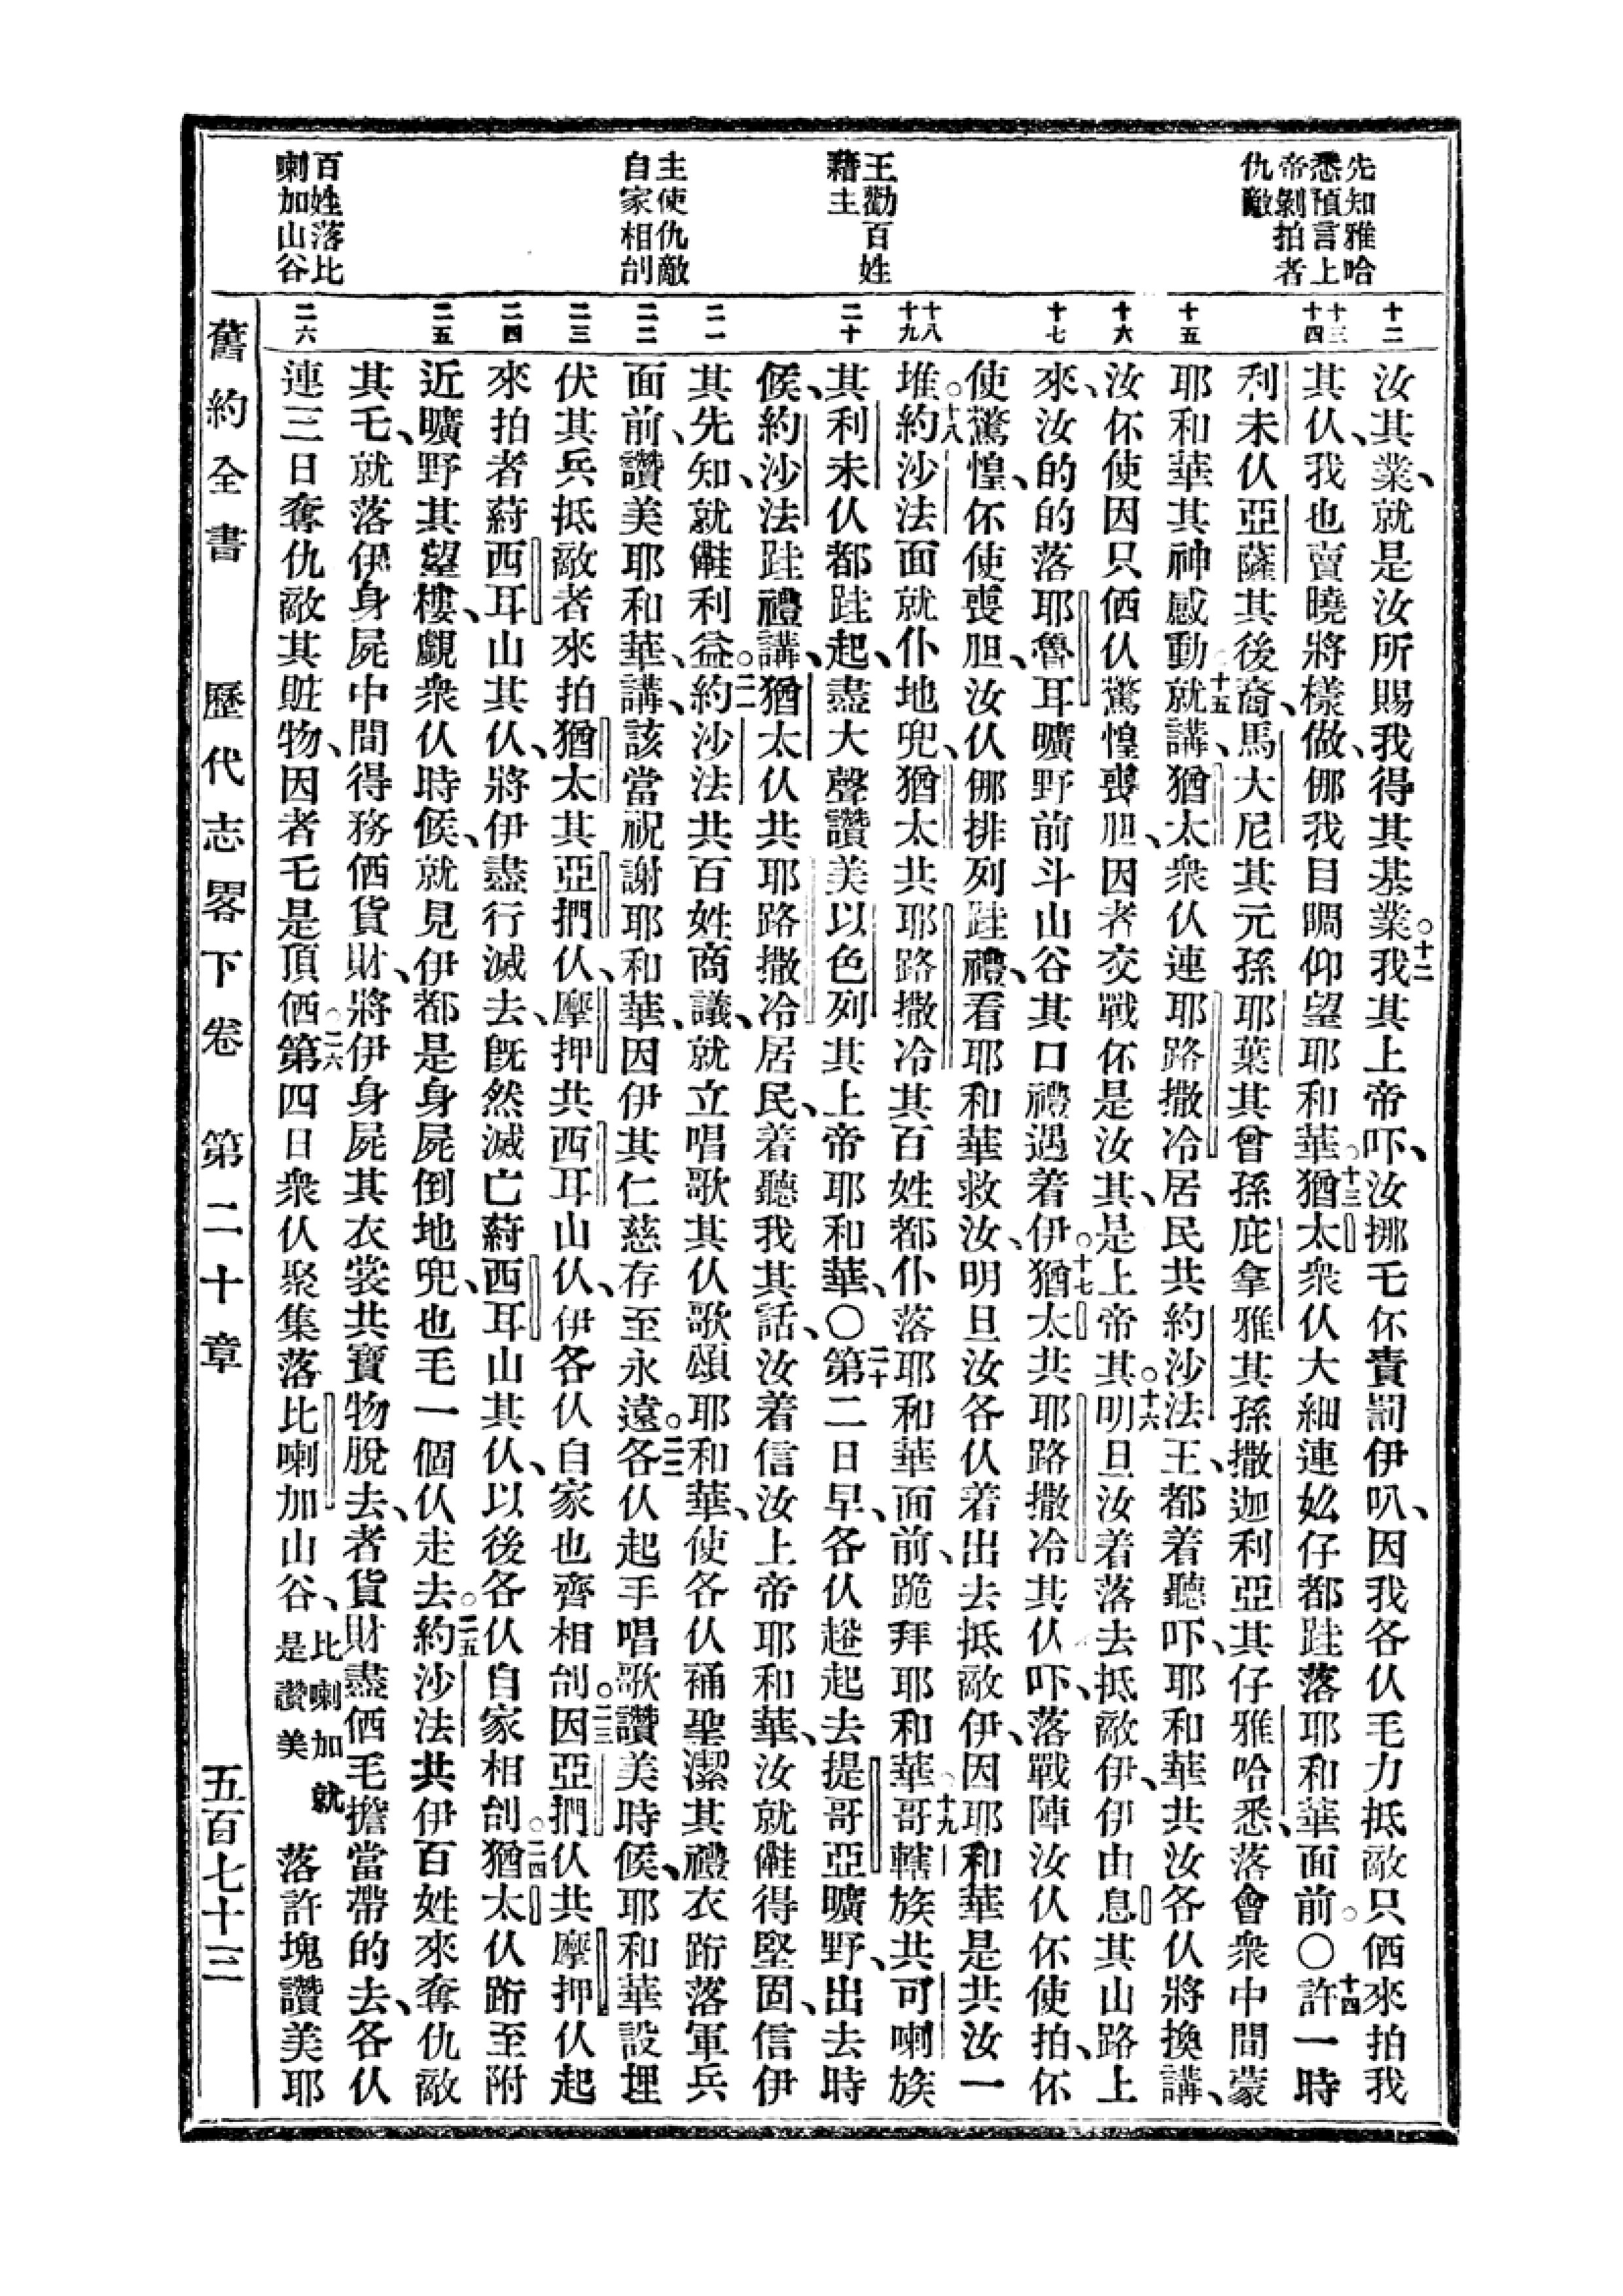 先知雅哈
悉預言上
帝剝拍者
仇敵
王勸百姓
藉主
主使仇敵
自家相刣
百姓落比
喇加山谷
十二
十三
十四
十五
十六
十七
十八
十九
二十
二一
二二
二三
二四
二五
二六
汝其業、就是汝所賜我得其基業。十二我其上帝吓、汝挪乇伓責罰伊叭、因我各仫毛力抵敵只偤來拍我
其仫、我也賣曉將樣做、㑚我目睭仰望耶和華。十三猶太衆仫大細連奻仔都跬落耶和華面前。〇十四許一時
利未仫亞薩其後裔、馬大尼其元孫耶葉其曾孫庇拿雅其孫撒迦利亞其仔雅哈悉、落會衆中間蒙
耶和華其神感動。十五就講、猶太衆仫連耶路撒冷居民共約沙法王、都着聽吓、耶和華共汝各仫將換講、
汝伓使因只偤仫驚惶喪胆、因者交戰伓是汝其、是上帝其。十六明旦汝着落去抵敵伊、伊由息其山路上
來、汝的的落耶魯耳曠野前斗山谷其口禮遇着伊。十七猶太共耶路撒冷其仫吓、落戰陣汝仫伓使拍、伓
使驚惶、伓使喪胆、汝仫㑚排列跬禮、看耶和華救汝、明旦汝各仫着出去抵敵伊、因耶和華是共汝一
堆。十八約沙法面就仆地兜、猶太共耶路撒冷其百姓都仆落耶和華面前、跪拜耶和華。十九哥轄族共可喇族
其利未仫都跬起、盡大聲讚美以色列其上帝耶和華、〇二十第二日早、各仫趁起去提哥亞曠野、出去時
候、約沙法跬禮講、猶太仫共耶路撒冷居民、着聽我其話、汝着信汝上帝耶和華、汝就𠆧得堅固、信伊
其先知、就𠆧利益。二一約沙法共百姓商議、就立唱歌其仫歌頌耶和華、使各仫䄛聖潔其禮衣跡落軍兵
面前、讚美耶和華、講、該當祝謝耶和華、因伊其仁慈存至永遠。二二各仫起手唱歌讚美時候、耶和華設埋
伏其兵抵敵者來拍猶太其亞捫仫、摩押共西耳山仫、伊各仫自家也齊相刣。二三因亞捫仫共摩押仫起
來拍者蔚西耳山其仫、將伊盡行滅去、旣然滅亡蔚西耳山其仫、以後各仫自家相刣。二四猶太仫跡至附
近曠野其望樓、覷衆仫時候、就見伊都是身屍倒地兜、也毛一個仫走去。二五約沙法共伊百姓來奪仇敵
其乇、就落伊身屍中間得務偤貨財、將伊身屍其衣裳共寶物脫去、者貨財盡偤毛擔當帶的去、各仫
連三日奪仇敵其賍物、因者乇是頂偤。二六第四日衆仫聚集落比喇加山谷、比喇加就是讚美落許塊讚美耶
舊約全書 歷代志畧下卷 第二十章 五百七十三